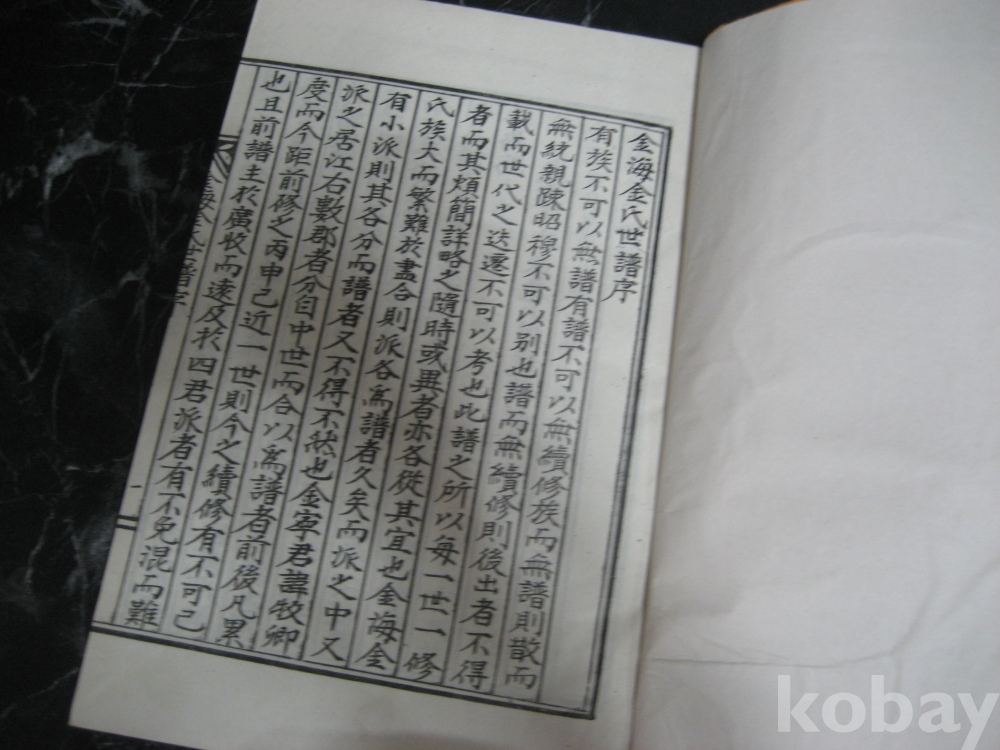 金海金氏世譜序
有族不可以無譜有譜不可以無續修族而無譜則散而
無統親踈昭穆不可以别也譜而無續修則後出者不得
載而世代之迭遷不可以考也此譜之所以每一世一修
者而其煩簡詳略之隨時或異者亦各從其宜也金海金
氏族大而繁難於盡合則派各爲譜者久矣而派之中又
有小派則其各分而譜者又不得不然也金寧君諱牧卿
派之居江右數郡者分自中世而合以爲譜者前後凡累
度而今距前修之丙申已近一世則今之續修有不可已
也且前譜主於廣收而遠及於四君派者有不免混而難
金海金氏世譜序
一
kobay